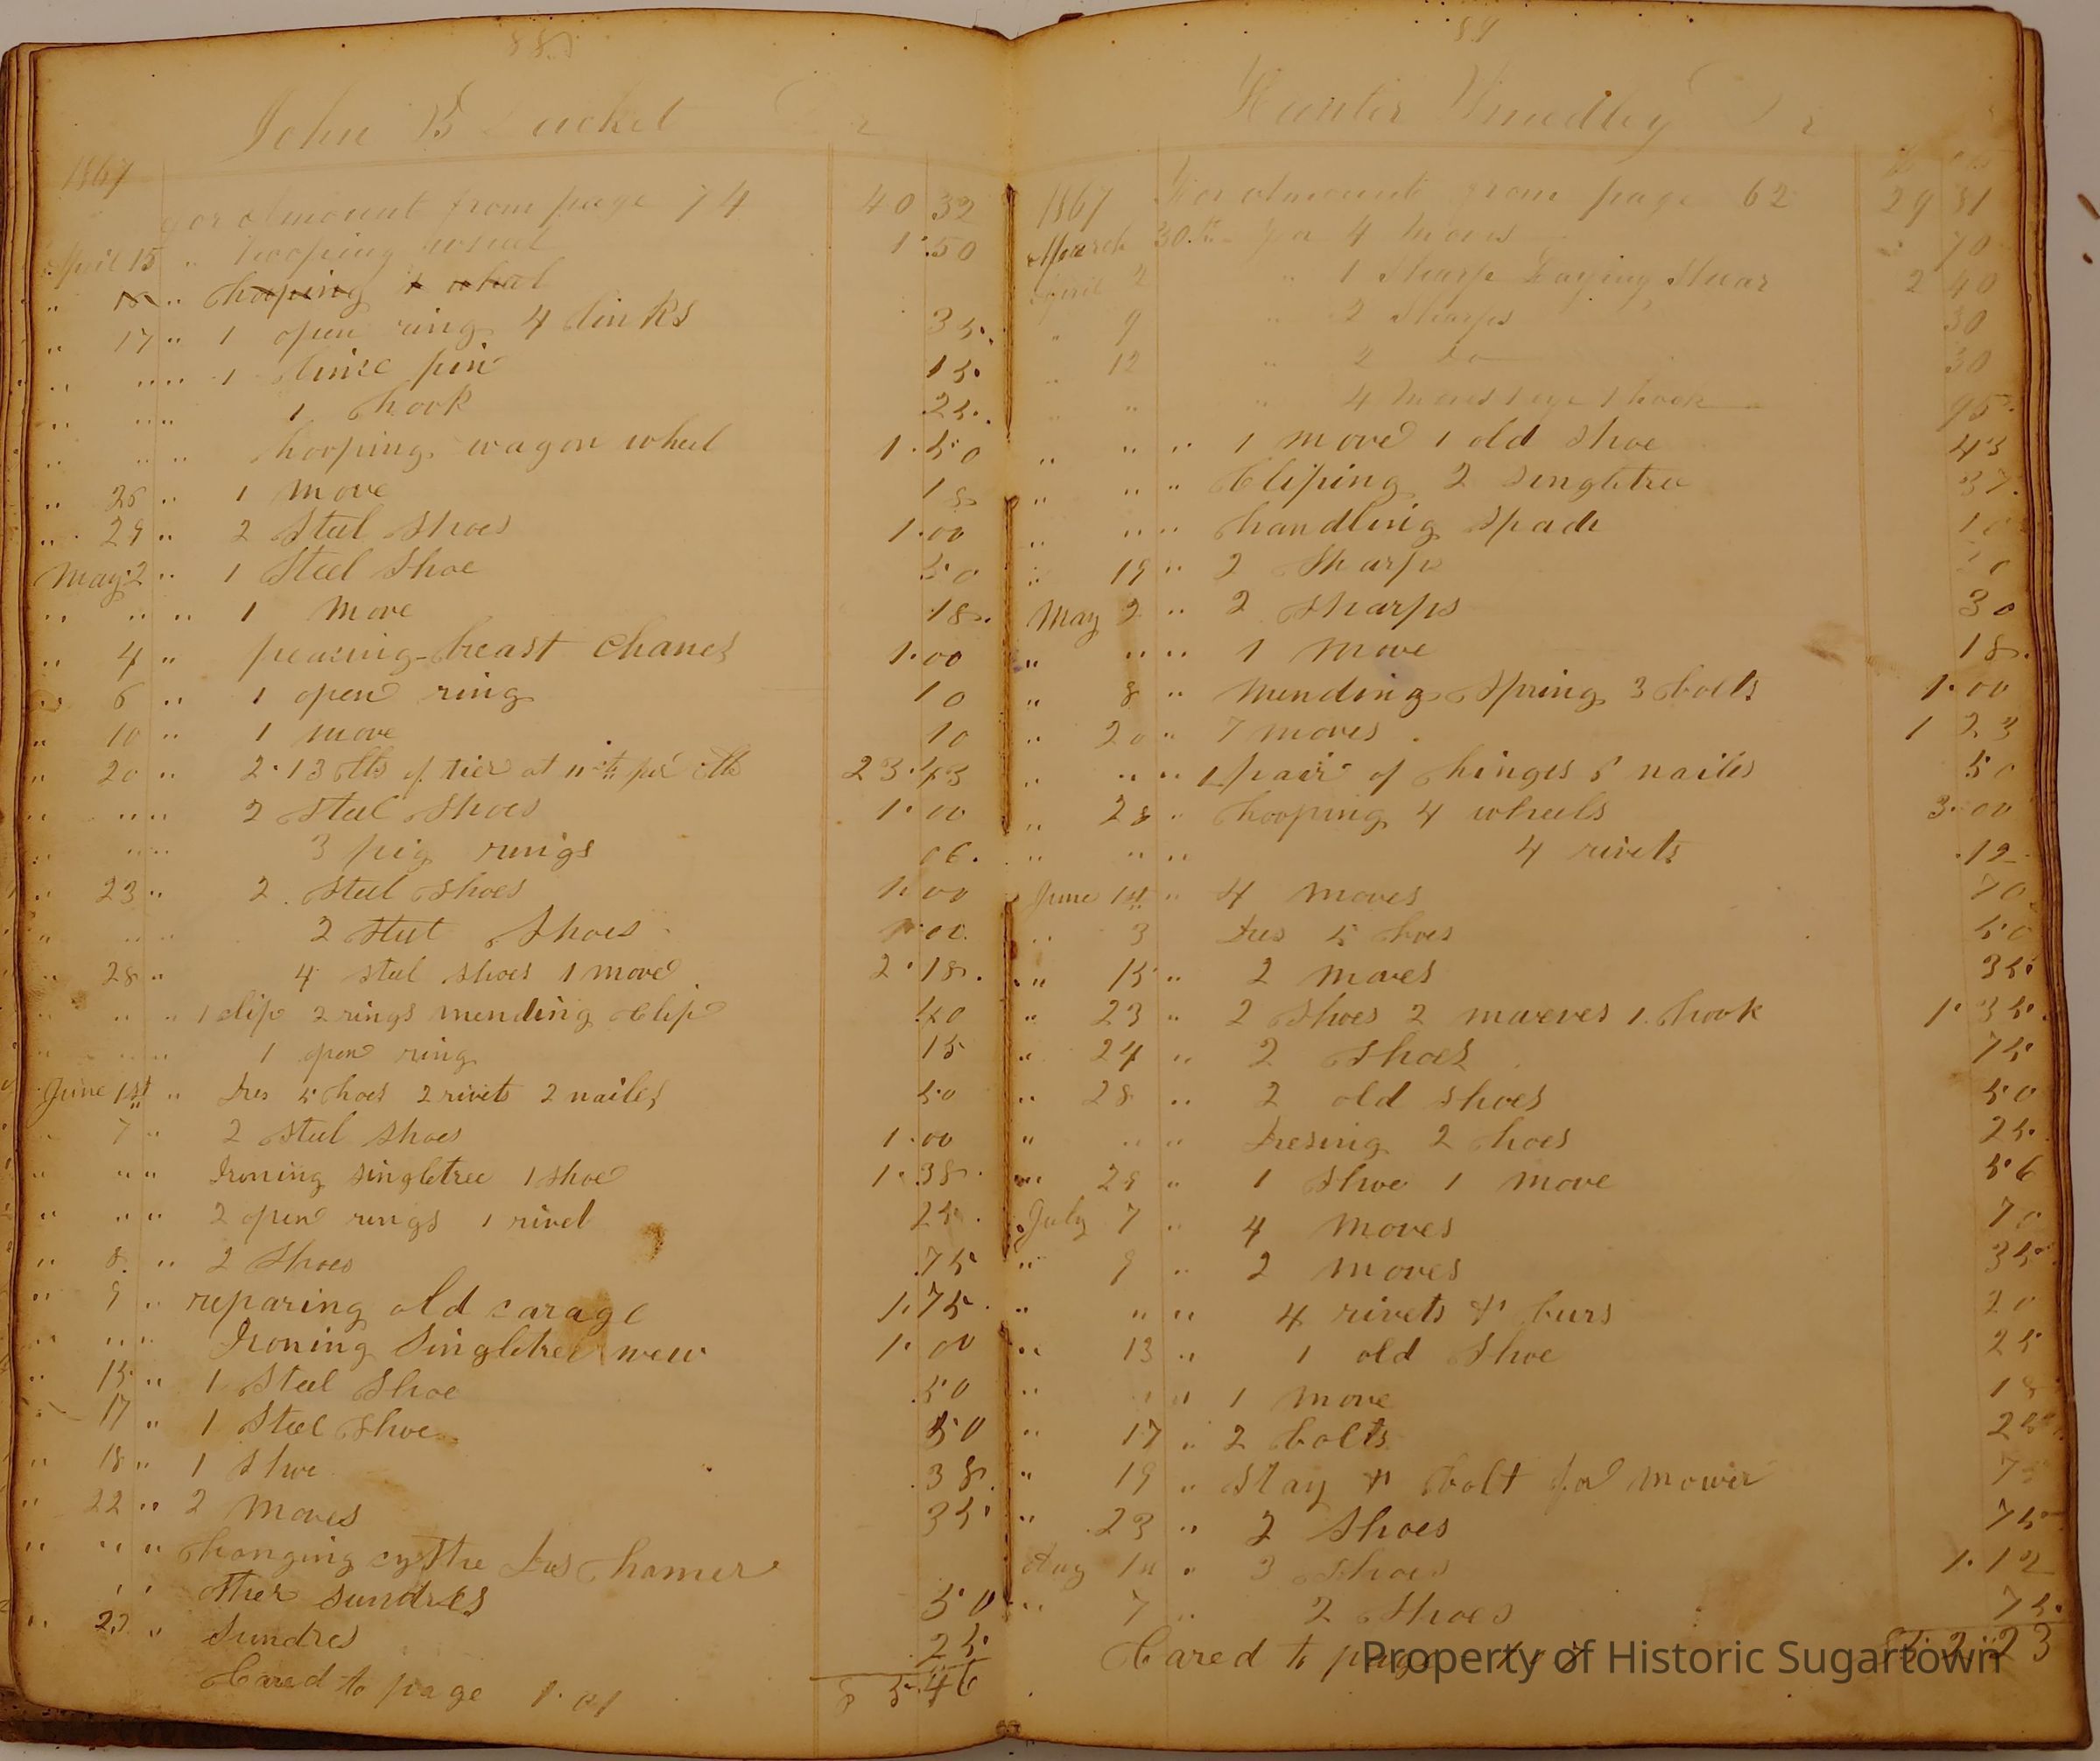 88
John B Lucket Dr
1867
For Amount from page 74 40 32
April 15 " hooping wheel 1.50
" 16 " hooping 1 wheel
" 17 " 1 open ring 4 links 35.
" " " 1 pin 15.
" " 1 hook 25.
" " " hooping wagon wheel 1.50
" 26 " 1 move 18
" 29 " 2 Steel Shoes 1.00
May 2 " 1 Steel Shoe 50
" " " 1 move 18.
" 4 " breast chanes 1.00
" 6 " 1 open ring 10
" 10 " 1 move 10
" 20 " 2.13 lbs of tier at 11 cts per lb 23.43
" " " 2 Steel Shoes 1.00
" " 3 pig rings 06.
" 23 " 2 Steel Shoes 1.00
" " " 2 Steel Shoes 1.00
" 28 " 4 steel shoes 1 move 2.18.
" " " 1 clip 2 rings mending Clip 40
" " " 1 open ring 15
June 1st " Dres 5 hoes 2 rivets 2 nailes 50
" 7 " 2 Steel Shoes 1.00
" " " Ironing singletree 1 shoe 1.38.
" " " 2 open rings 1 rivet 25.
" 8. " 2 Shoes .75
" 9 " reparing old carage 1.75.
" " " Ironing Singletree new 1.00
" 15 " 1 Steel Shoe .50
" 17 " 1 Steel Shoe 50
" 18 " 1 Shoe .38.
" 22 " 2 moves 35.
" " " hanging cythe Dres hamer
" " other sundres 50
" 23 " Sundres .25.
Cared to page 101 85.46
89
Hunter Smedley Dr
$ cts
1867 For Amount from page 62 29 81
March 30th for 4 moves 70
April 2 " 1 Sharp Laying Shear 2 40
" 9 " 2 Sharps 30
" 12 " 2 do 30
" " " 4 moves 1 eye 1 hook 95.
" " " 1 move 1 old shoe 43
" " " Cliping 2 singletree 37.
" " " handling spade 10
" 19 " 2 Sharps
May 2 " 2 Sharps 30
" " " 1 move 18.
" 8 " mending Spring 3 bolts 1.00
" 20 " 7 moves . 1 23
" " " 1 pair of hinges 5 nailes 50
" 28 " hooping 4 wheels 3.00
" " " 4 rivets .12
June 1st " 4 moves 70
" 3 Dres 5 hoes 50
" 15 " 2 moves 35.
" 23 " 2 Shoes 2 moeves 1 hook 1.35.
" 24 " 2 Shoes 75
" 28 " 2 old shoes 50
" " " Dresing 2 hoes 25.
" 29 " 1 Shoe 1 move 56
July 7 " 4 moves 70
" 9 " 2 moves 35
" " " 4 rivets & burs 20
" 13 " 1 old Shoe 25
" " " 1 move 18
" 17 " 2 bolts 25
" 19 " Stay & bolt for mower 75
" 23 " 2 Shoes 75
Aug 1st " 3 Shoes 1.12
" 7 " 2 Shoes 75.
Cared to page 52.23
Property of Historic Sugartown